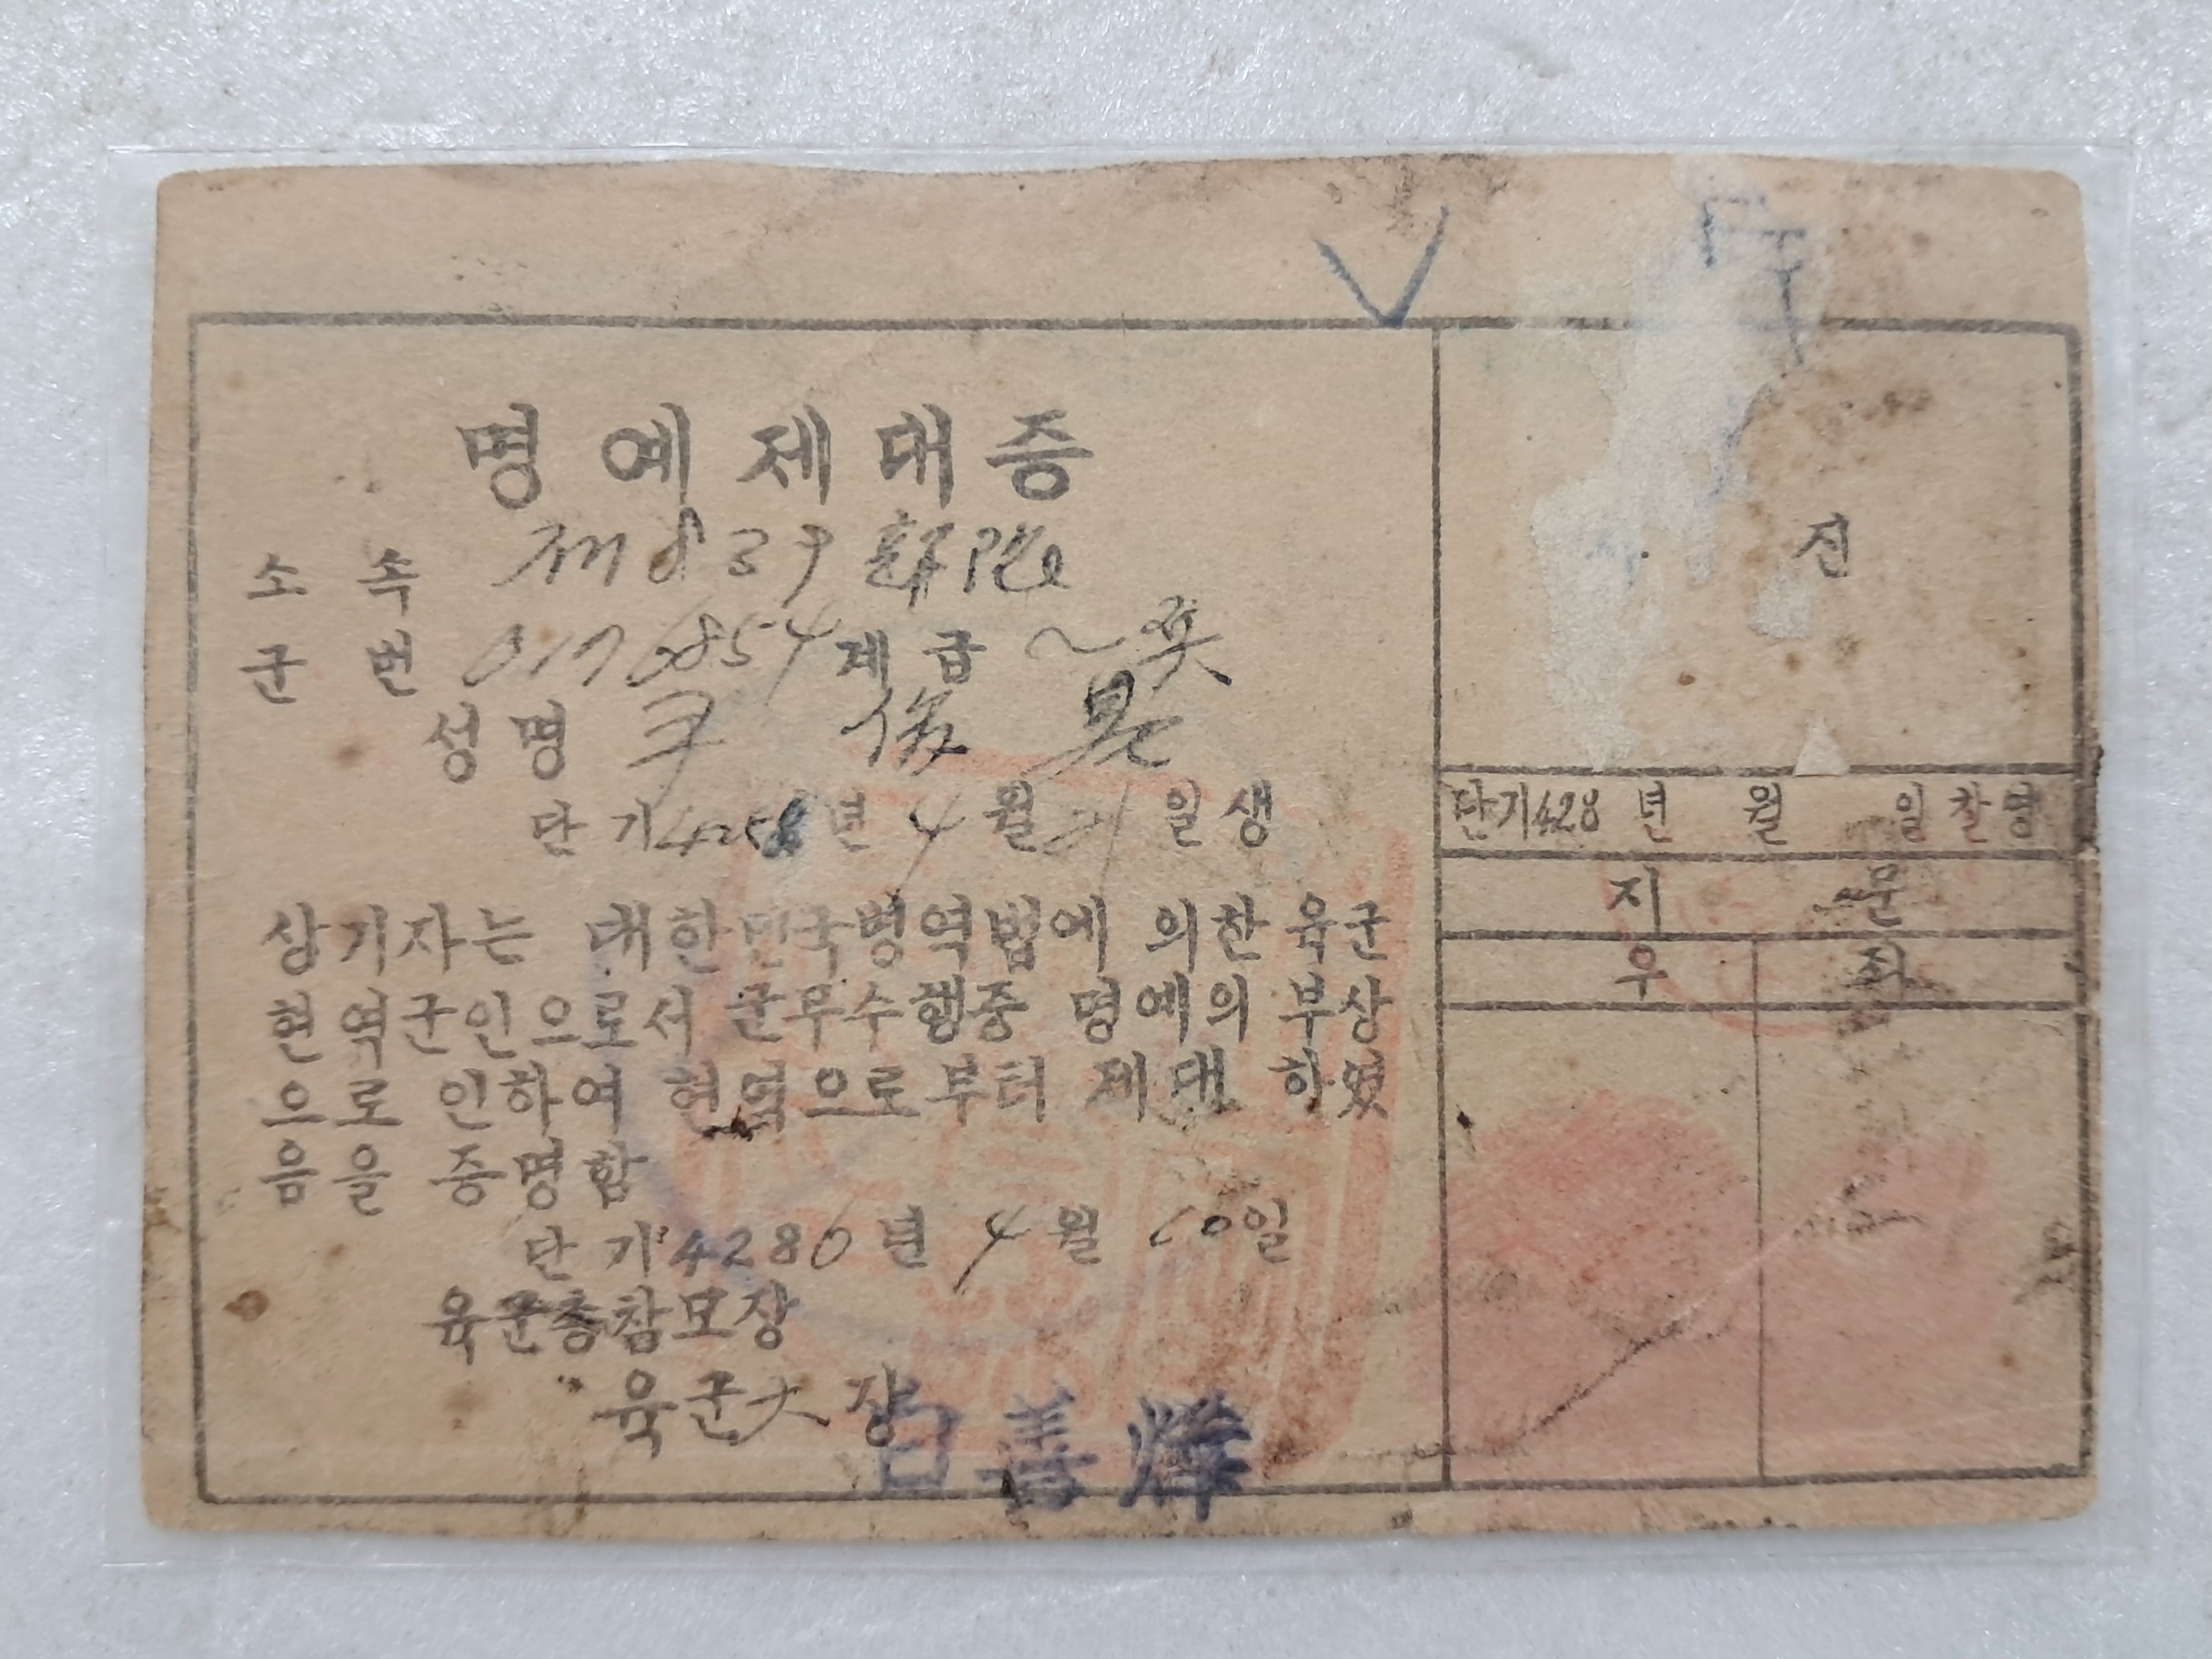 명예제대증
소속 第839部隊
군번 0176854 계급 一英
성명 尹 俊
단기4258년 4월 21일생
상기자는 대한민국병역법에 의한 육군
현역군인으로서 군무수행중 명예의 부상
으로 인하여 현역으로부터 제대 하였
음을 증명함
단기4286년 4월 10일
육군총참모장
육군大장 白善燁
진
단기428 년 월 일찰영
지 문
우 좌